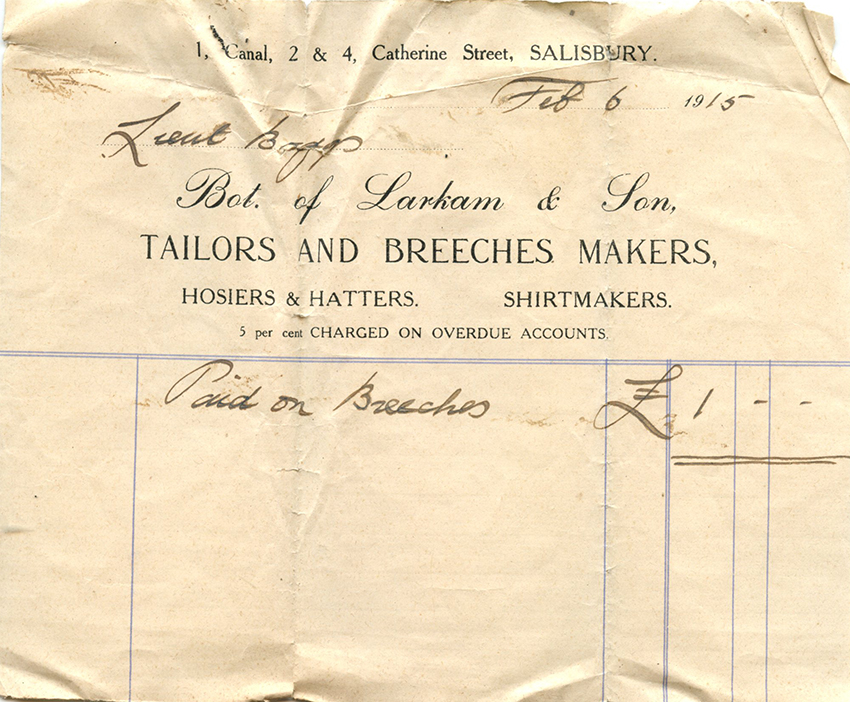 1, Canal, 2 & 4, Catherine Street, SALISBURY.
Feb 6 1915
Lieut Baggs
Bot. of Larkam & Son,
TAILORS AND BREECHES MAKERS,
HOSIERS & HATTERS. SHIRTMAKERS.
5 per cent CHARGED ON OVERDUE ACCOUNTS.
Paid on Breeches £ 1 - -